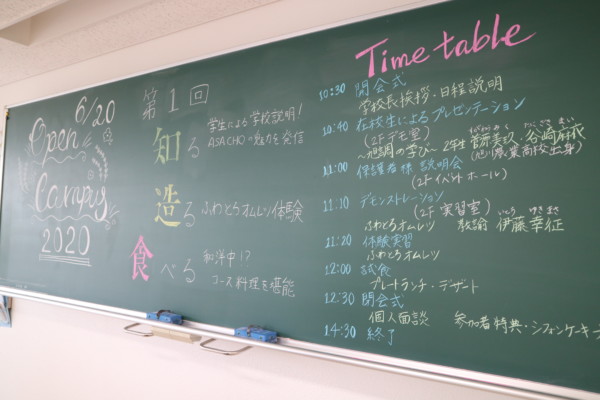 6/20
Open
Campus
2020
第1回
知る
学生による学校説明!
ASACHOの魅力を発信
造る
ふわとろオムレツ体験
食べる
和洋中!?
コース料理を堪能
Time table
10:30 開会式
学校長挨拶・日程説明
10:40 在校生によるプレゼンテーション
(2Fデモ室)
～旭調の学び～ 2年生 菅原美玖、谷崎麻衣
(旭川農業高校出身)
11:00 保護者様説明会
(2Fイベントホール)
11:10 デモンストレーション
(2F 実習室)
ふわとろオムレツ 教諭 伊藤幸征
11:20 体験実習
ふわとろオムレツ
12:00 試食
プレートランチ・デザート
12:30 閉会式
個人面談 参加者特典・シフォンケーキ
14:30 終了